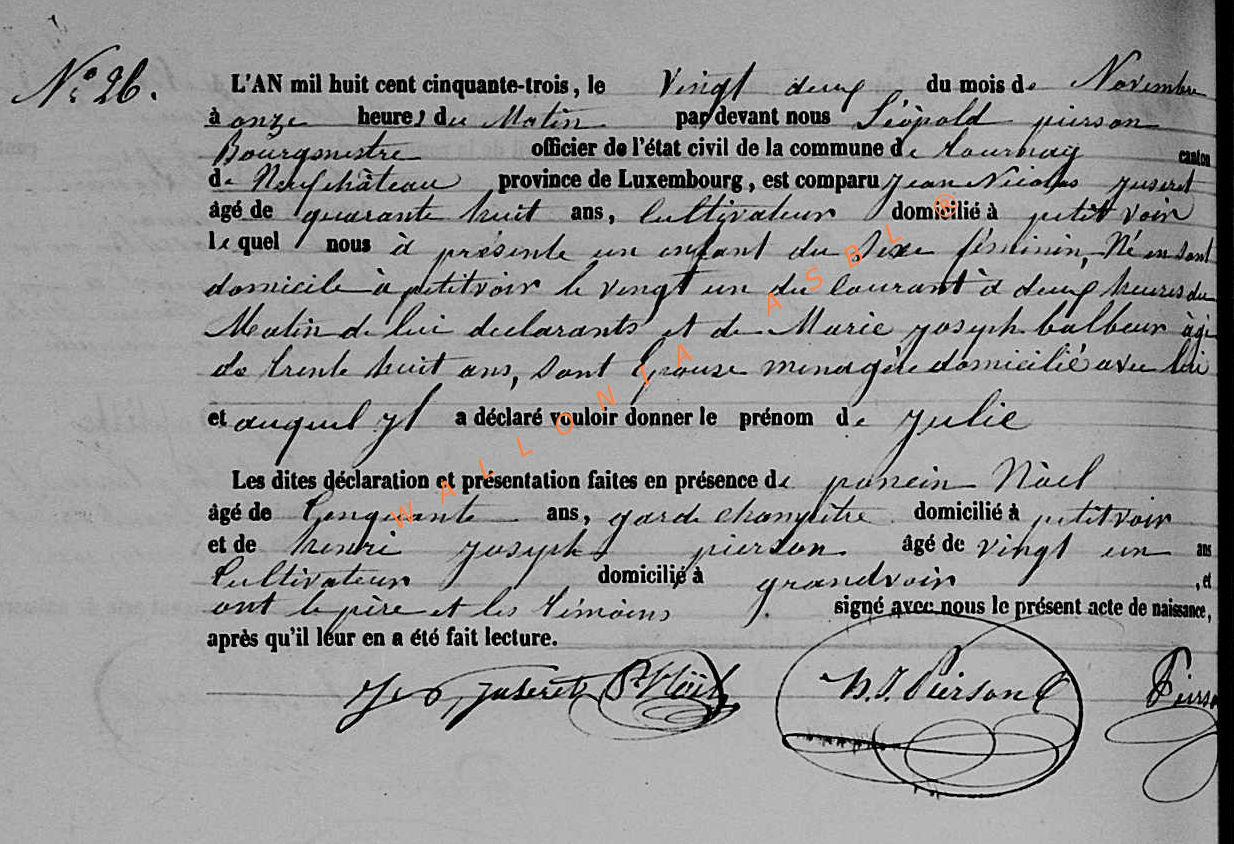 N° 26.
L'AN mil huit cent cinquante-trois, le Vingt deux du mois de Novembre
à onze heures du Matin par devant nous Léopold pierson
Bourgmestre officier de l'état civil de la commune de tournay canton
de Neufchâteau province de Luxembourg, est comparu Jean Nicolas Juseret
âgé de quarante huit ans, Cultivateur domicilié à petit voir
le quel nous à présente un enfant du Sexe féminin, Né en sont
domicile à petitvoir le vingt un du Courant à deux heures du
Matin de lui declarants et de Marie joseph balbeur âgé
de trente huit ans, sont Epouse menagére domicilié avec lui
et auquel yl a déclaré vouloir donner le prénom de Julie
Les dites déclaration et présentation faites en présence de Nöel
âgé de Cenquante ans, garde champêtre domicilié à petitvoir
et de henri joseph pierson âgé de vingt un ans
Cultivateur domicilié à grandvoir , et
ont le père et les témoins signé avec nous le présent acte de naissance,
après qu'il leur en a été fait lecture.
Juseret P Nöel h. J. Pierson Pierso
WALLONIA ASBL ®